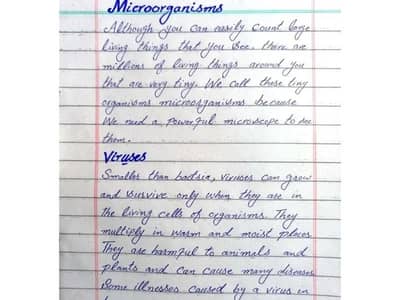 Microorganisms
Although you can easily count large
living things that you see. there are
millions of living things around you
that are very tiny. We call these tiny
organisms microorganisms because
We need a powerful microscope to see
them.
Viruses
Smaller than bactria, viruses can grow
and survive only when they are in
the living cells of organisms. They
multiply in warm and moist places
They are harmful to animals and
plants and can cause many diseases
Some illnesses caused by a virus in